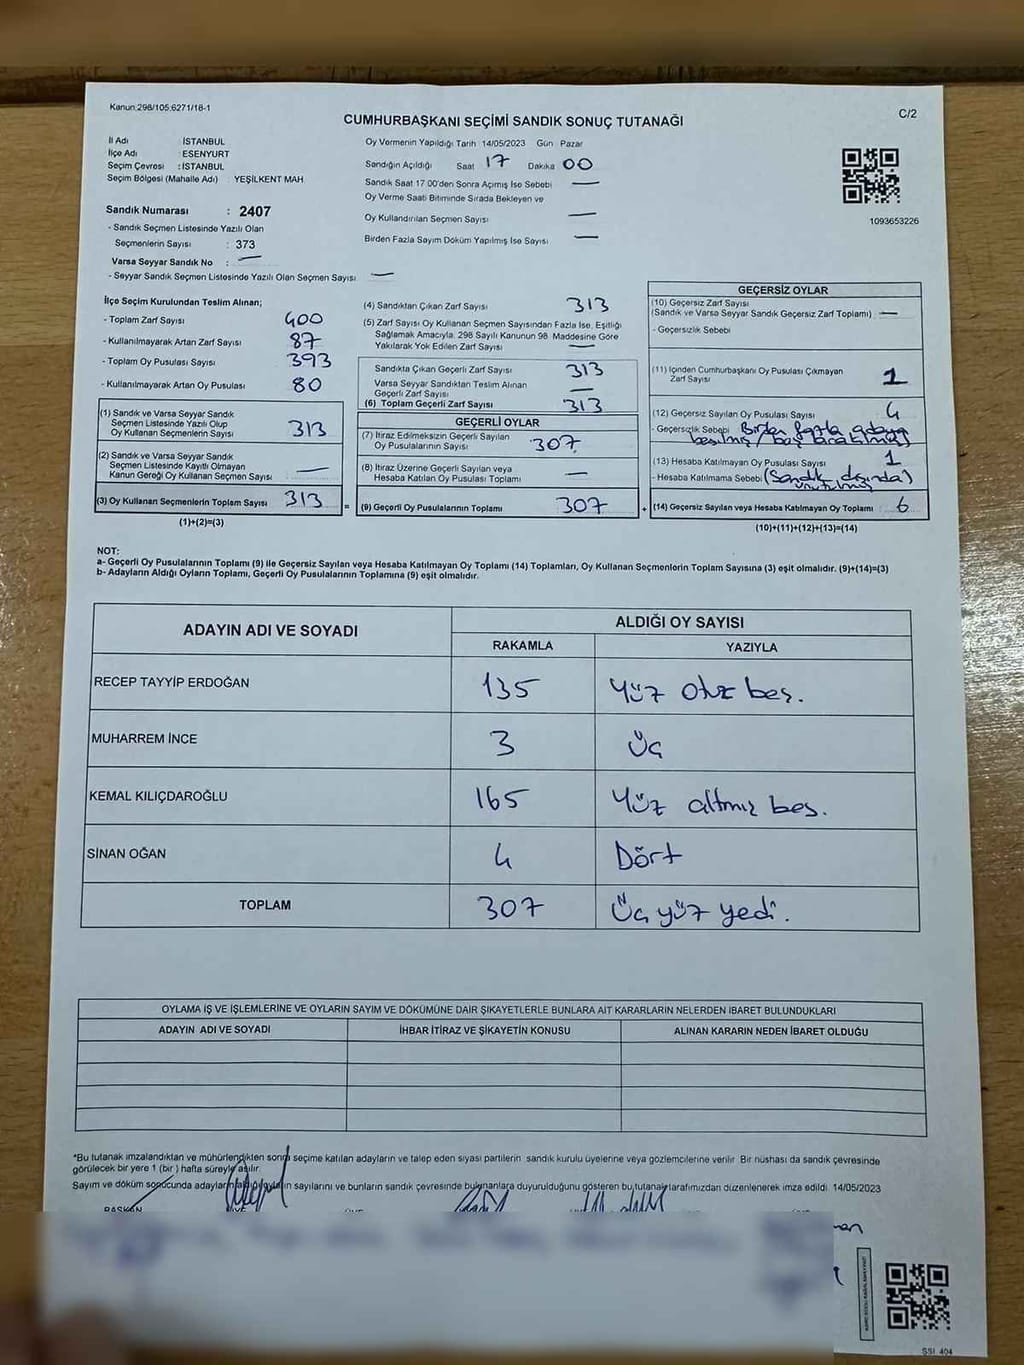 Kanun:298/105;6271/18-1
C/2
CUMHURBAŞKANI SEÇİMİ SANDIK SONUÇ TUTANAĞI
İl Adı İSTANBUL
İlçe Adı : ESENYURT
Seçim Çevresi : İSTANBUL
Seçim Bölgesi (Mahalle Adı) YEŞİLKENT MAH.
Sandık Numarası : 2407
- Sandık Seçmen Listesinde Yazılı Olan
Seçmenlerin Sayısı : 373
Varsa Seyyar Sandık No : —
- Seyyar Sandık Seçmen Listesinde Yazılı Olan Seçmen Sayısı —
Oy Vermenin Yapıldığı Tarih 14/05/2023 Gün Pazar
Sandığın Açıldığı Saat 17 Dakika 00
Sandık Saat 17.00'den Sonra Açımış İse Sebebi —
Oy Verme Saati Bitiminde Sırada Bekleyen ve
Oy Kullandırılan Seçmen Sayısı —
Birden Fazla Sayım Döküm Yapılmış İse Sayısı —
1093653226
İlçe Seçim Kurulundan Teslim Alınan;
- Toplam Zarf Sayısı 400
- Kullanılmayarak Artan Zarf Sayısı 87
- Toplam Oy Pusulası Sayısı 393
- Kullanılmayarak Artan Oy Pusulası 80
(1) Sandık ve Varsa Seyyar Sandık
Seçmen Listesinde Yazılı Olup
Oy Kullanan Seçmenlerin Sayısı 313
(2) Sandık ve Varsa Seyyar Sandık
Seçmen Listesinde Kayıtlı Olmayan
Kanun Gereği Oy Kullanan Seçmen Sayısı —
(3) Oy Kullanan Seçmenlerin Toplam Sayısı 313
(1)+(2)=(3)
(4) Sandıktan Çıkan Zarf Sayısı 313
(5) Zarf Sayısı Oy Kullanan Seçmen Sayısından Fazla İse, Eşitliği
Sağlamak Amacıyla, 298 Sayılı Kanunun 98. Maddesine Göre
Yakılarak Yok Edilen Zarf Sayısı —
Sandıkta Çıkan Geçerli Zarf Sayısı 313
Varsa Seyyar Sandıktan Teslim Alınan
Geçerli Zarf Sayısı —
(6) Toplam Geçerli Zarf Sayısı 313
GEÇERLİ OYLAR
(7) İtiraz Edilmeksizin Geçerli Sayılan
Oy Pusulalarının Sayısı 307
(8) İtiraz Üzerine Geçerli Sayılan veya
Hesaba Katılan Oy Pusulası Toplamı —
= (9) Geçerli Oy Pusulalarının Toplamı 307
GEÇERSİZ OYLAR
(10) Geçersiz Zarf Sayısı
(Sandık ve Varsa Seyyar Sandık Geçersiz Zarf Toplamı) —
- Geçersizlik Sebebi
(11) İçinden Cumhurbaşkanı Oy Pusulası Çıkmayan
Zarf Sayısı 1
(12) Geçersiz Sayılan Oy Pusulası Sayısı 4
- Geçersizlik Sebebi Birden fazla adaya
basılmış / boş bırakılmış
(13) Hesaba Katılmayan Oy Pusulası Sayısı 1
- Hesaba Katılmama Sebebi (Sandık dışında)
unutulmuş
+ (14) Geçersiz Sayılan veya Hesaba Katılmayan Oy Toplamı 6
(10)+(11)+(12)+(13)=(14)
NOT:
a- Geçerli Oy Pusulalarının Toplamı (9) ile Geçersiz Sayılan veya Hesaba Katılmayan Oy Toplamı (14) Toplamları, Oy Kullanan Seçmenlerin Toplam Sayısına (3) eşit olmalıdır. (9)+(14)=(3)
b- Adayların Aldığı Oyların Toplamı, Geçerli Oy Pusulalarının Toplamına (9) eşit olmalıdır.
ADAYIN ADI VE SOYADI
ALDIĞI OY SAYISI
RAKAMLA YAZIYLA
RECEP TAYYİP ERDOĞAN 135 Yüz otuz beş.
MUHARREM İNCE 3 Üç
KEMAL KILIÇDAROĞLU 165 Yüz altmış beş.
SİNAN OĞAN 4 Dört
TOPLAM 307 Üç yüz yedi.
OYLAMA İŞ VE İŞLEMLERİNE VE OYLARIN SAYIM VE DÖKÜMÜNE DAİR ŞİKAYETLERLE BUNLARA AİT KARARLARIN NELERDEN İBARET BULUNDUKLARI
ADAYIN ADI VE SOYADI İHBAR İTİRAZ VE ŞİKAYETİN KONUSU ALINAN KARARIN NEDEN İBARET OLDUĞU
*Bu tutanak imzalandıktan ve mühürlendikten sonra seçime katılan adayların ve talep eden siyasi partilerin sandık kurulu üyelerine veya gözlemcilerine verilir. Bir nüshası da sandık çevresinde
görülecek bir yere 1 (bir) hafta süreyle asılır.
Sayım ve döküm sonucunda adayların aldığı oyların sayılarını ve bunların sandık çevresinde bulunanlara duyurulduğunu gösteren bu tutanak tarafımızdan düzenlenerek imza edildi. 14/05/2023
BAŞKAN ÜYE ÜYE
SSI_404